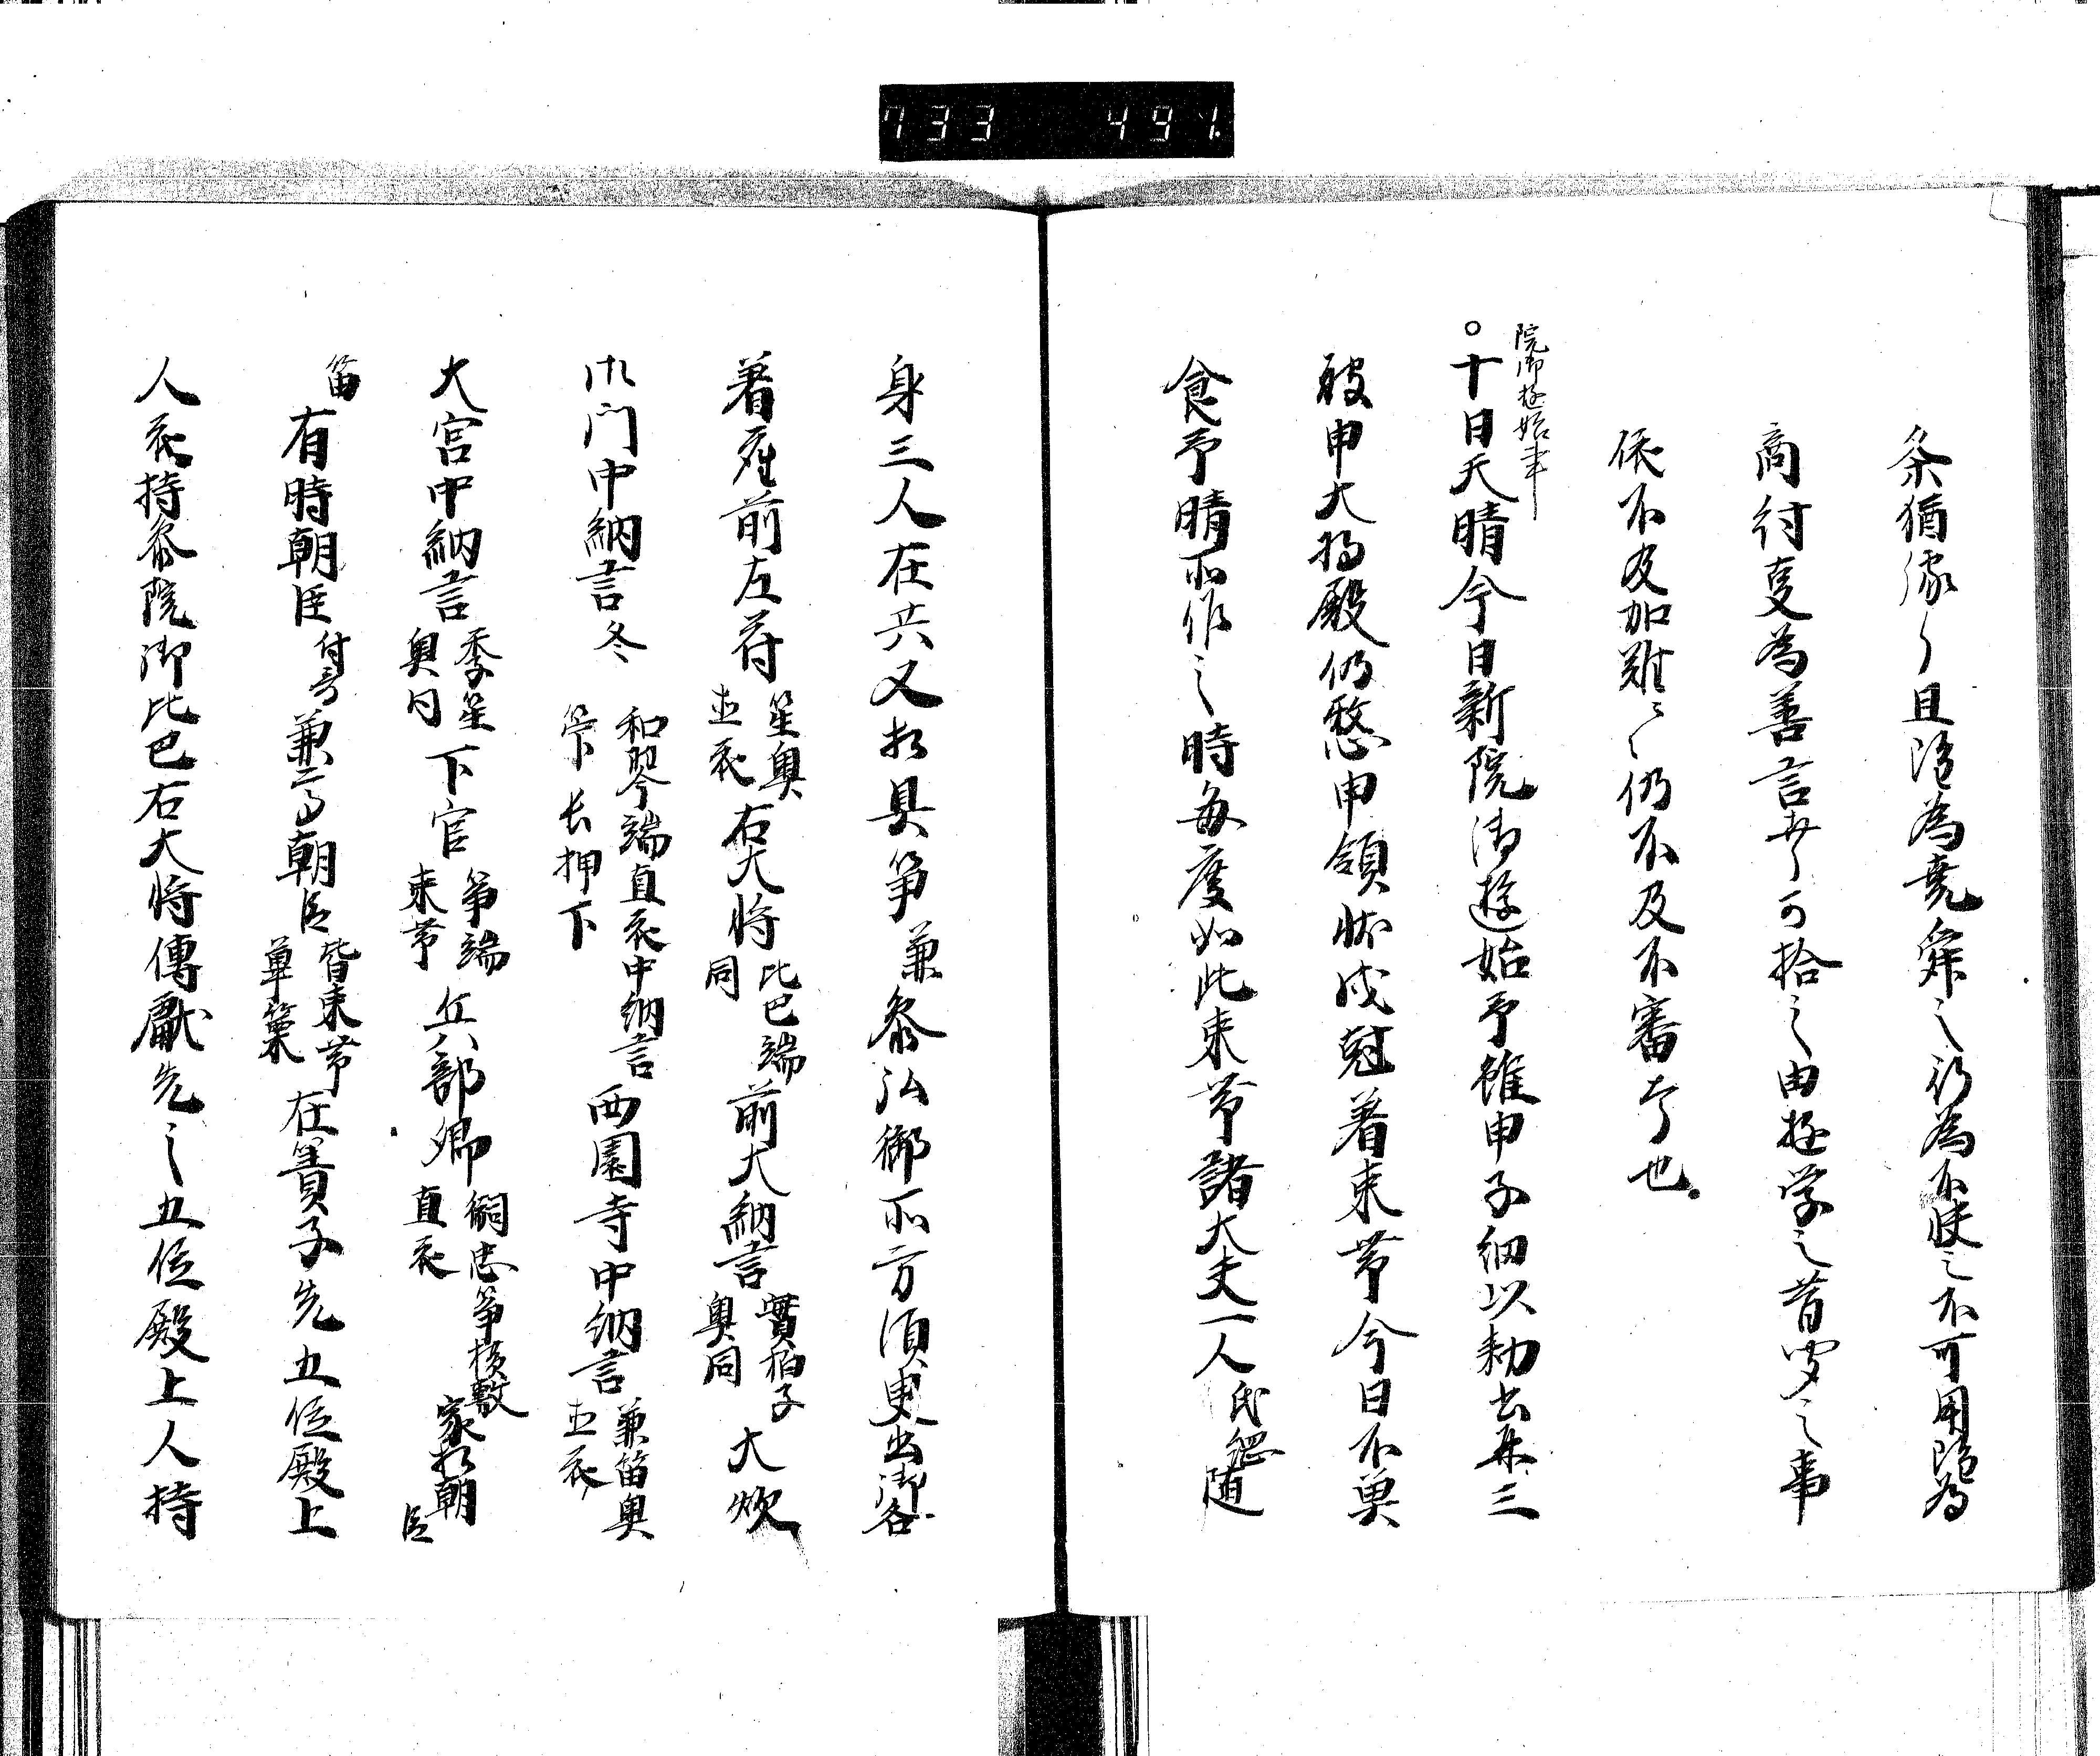 733 491
条猶緣〻且隠為堯舜之行為不快之不可用隠為
商付隻為善言少〻可拾之由扵学之首夢之事
依不及加難〻〻仍不及不審者也
院御遊始事
○十日天晴今日新院御遊始予雖申子細以勅書再三
被申大将殿仍愁申領状戌剋着束帯今日不奠
食予晴所作之時毎度如此束帯諸大夫一人氏綱随
身三人在共又相具箏兼参公卿所方須臾出御各
着座前左府笙奥直衣右大将比巴端同前大納言實拍子奥同大炊
御門中納言冬和琴端直衣中納言笏下長押下西園寺中納言兼笛奥直衣
大宮中納言季笙奥同下官箏端束帯兵部卿嗣忠箏横敷直衣家相朝臣
笛有時朝臣付哥兼高朝臣皆束帯篳篥在簀子先五位殿上
人衣持参院御比巴右大将傳献先之五位殿上人持